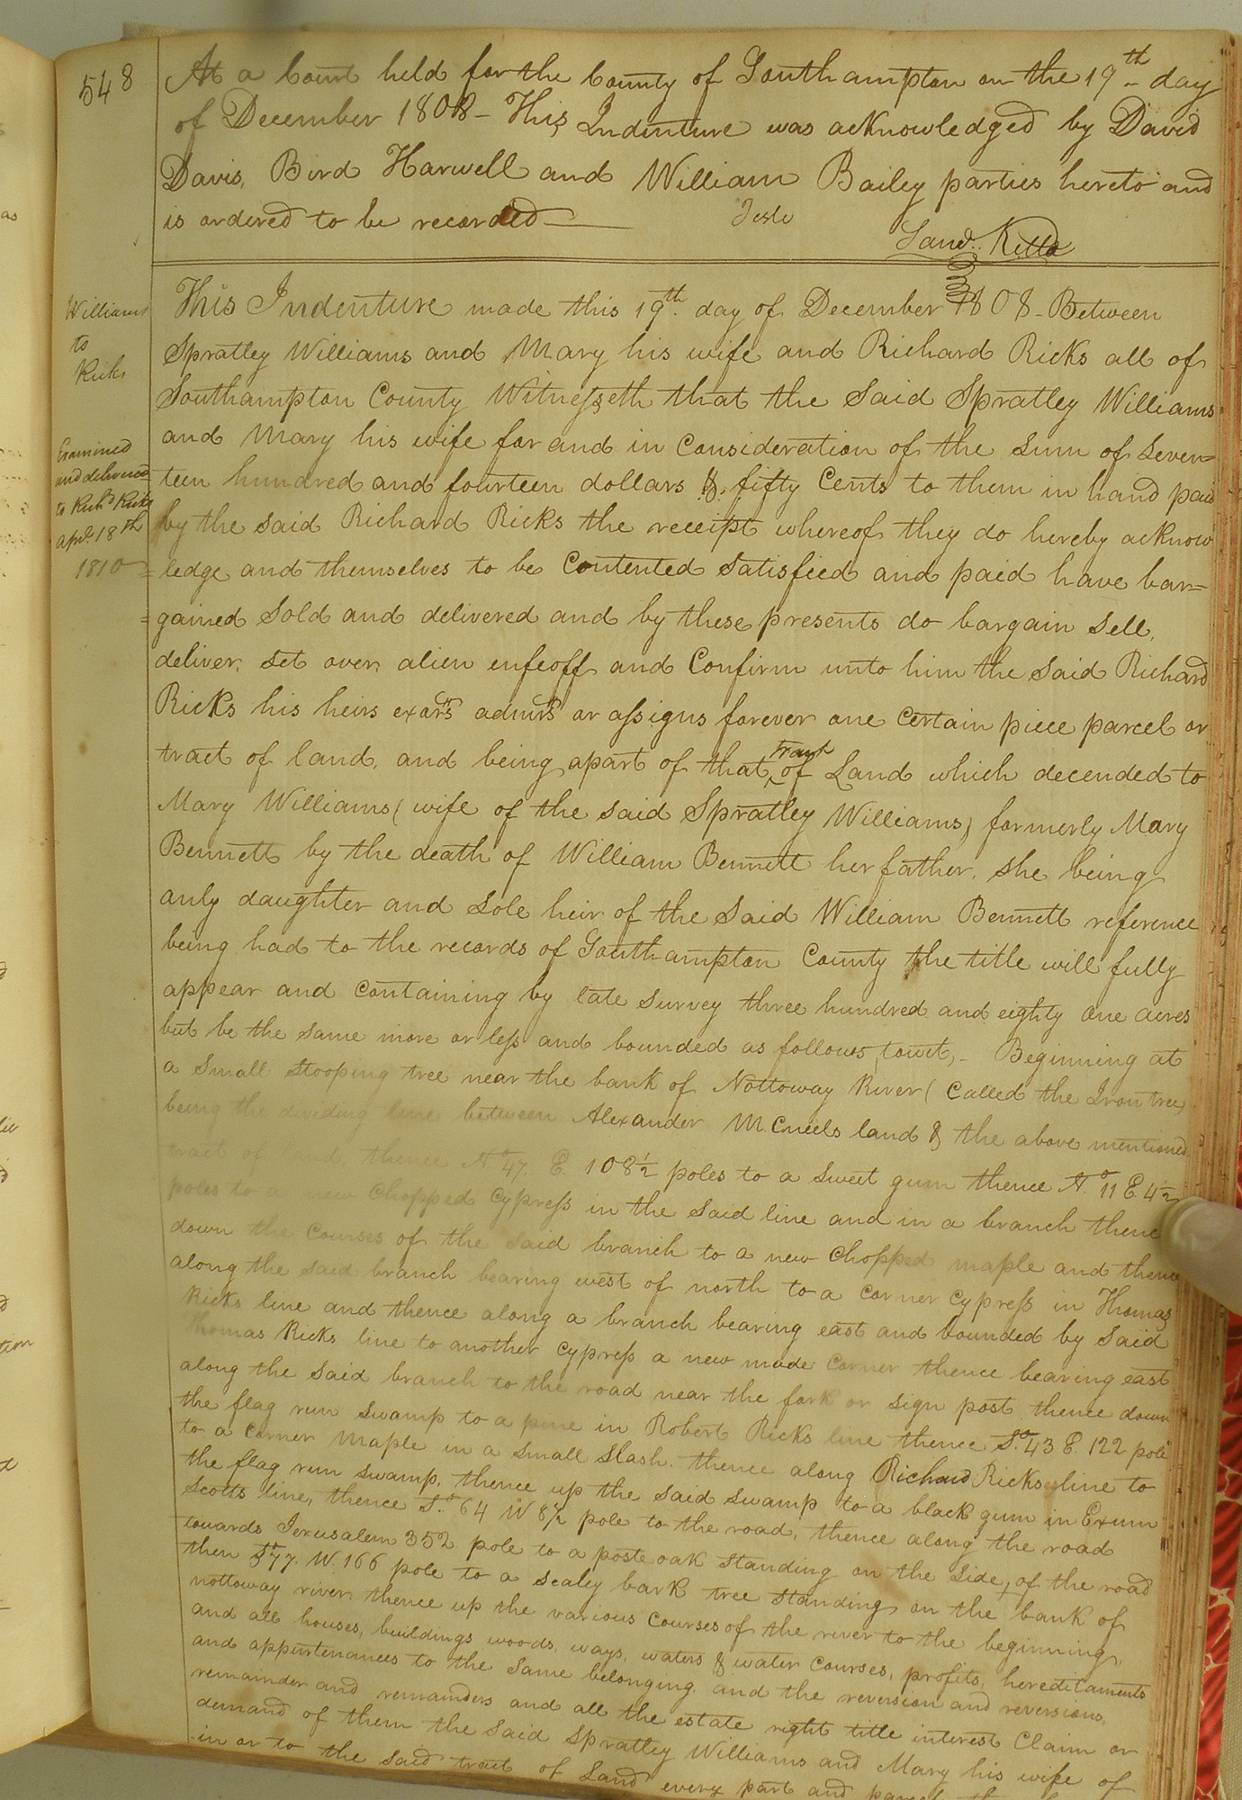 548
At a Court held for the County of Southampton on the 19th day
of December 1808 - This Indenture was acknowledged by David
Davis, Bird Harwell and William Bailey parties hereto and
is ordered to be recorded
Teste
Saml. Kello
Williams
to
Ricks
Examined
and delivered
to Richd Ricks
apl. 18th
1810
This Indenture made this 19th day of December 1808 - Between
Spratley Williams and Mary his wife and Richard Ricks all of
Southampton County Witnesseth that the Said Spratley Williams
and Mary his wife for and in Consideration of the Sum of Seven=
teen hundred and fourteen dollars & fifty Cents to them in hand paid
by the said Richard Ricks the receipt whereof they do hereby acknow
=ledge and themselves to be Contented Satisfied and paid have bar=
=gained Sold and delivered and by these presents do bargain Sell,
deliver, Set over, alien enfeoff and Confirm unto him the Said Richard
Ricks his heirs exors admrs or assigns forever one Certain piece parcel or
tract of land, and being apart of that tract of Land which decended to
Mary Williams (wife of the said Spratley Williams) formerly Mary
Bennett by the death of William Bennett her father, She being
only daughter and Sole heir of the Said William Bennett reference
being had to the records of Southampton County the title will fully
appear and Containing by late Survey three hundred and eighty One acres
but be the same more or less and bounded as follows, towit, - Beginning at
a Small Stooping tree near the bank of Nottoway River (Called the Iron tree)
being the dividing line between Alexander McCneils land & the above mentioned
tract of land thence No 47. E. 108 1/2 poles to a Sweet gum thence No 11 E 4 1/2
poles to a new Chopped Cypress in the Said line and in a branch thence
down the Courses of the said branch to a new Chopped maple and thence
along the said branch bearing west of north to a Corner Cypress in Thomas
Ricks line and thence along a branch bearing east and bounded by Said
Thomas Ricks line to another Cypress a new made Corner thence bearing east
along the Said branch to the road near the fork or Sign post thence down
the flag run Swamp to a pine in Robert Ricks line thence So. 43 E 122 pole
to a Corner Maple in a Small Slash. thence along Richard Ricks line to
the flag run swamp, thence up the Said Swamp to a black gum in Exum
Scotts line, thence So 64 W 8 1/2 pole to the road, thence along the road
towards Jerusalem 352 pole to a poste oak Standing on the Side of the road
then So 77. W. 166 pole to a Scaley bark tree Standing on the bank of
nottoway river thence up the various Courses of the river to the beginning,
and all houses, buildings woods, ways, waters & water Courses, profits, hereditaments
and appurtenances to the Same belonging, and the reversion and reversions,
remainder and remainders and all the estate right title interest Claim or
demand of them the Said Spratley Williams and Mary his wife of
in or to the Said tract of Land every part and